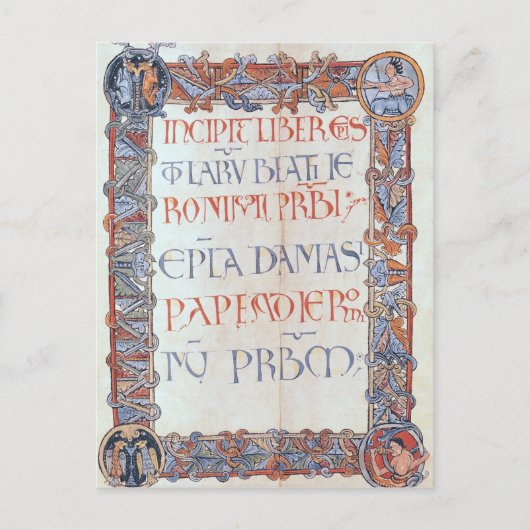 INCIPIT LIBER EPI
STLARV BIATI IE
RONIMI PRBI;
EPLA DAMASI
PAPE AD IERONI
MU PRBM;